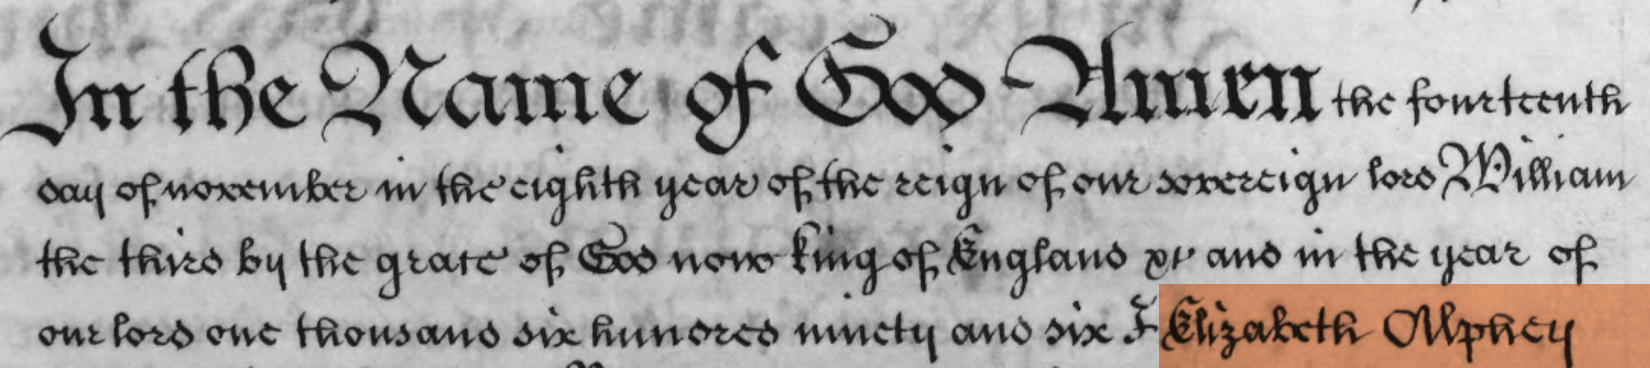 In the Name of God Amen the fourteenth
day of november in the eighth year of the reign of our sovereign lord William
the third by the grace of God now king of England &c and in the year of
our lord one thousand six hundred ninety and six I Elizabeth Allphey